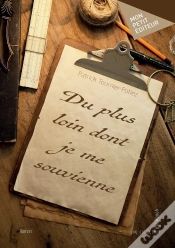 MON
PETIT
EDITEUR
Patrick Tournier-Pollet
Du plus
loin dont
je me
souvienne